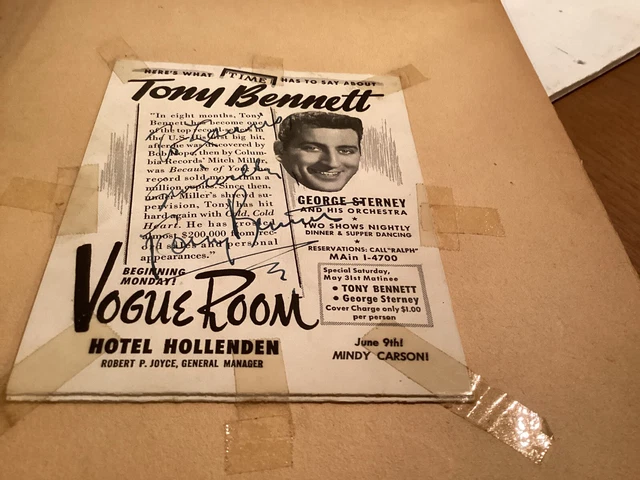 HERE'S WHAT TIME HAS TO SAY ABOUT
Tony Bennett
"In eight months, Tony
Bennett has become one
of the top record sellers in
the U.S. His first big hit,
after he was discovered by
Bob Hope, then by Colum-
bia Records' Mitch Miller
was Because of You. The
record sold more than a
million copies. Since then,
under Miller's shrewd su-
pervision, Tony has hit
hard again with Cold, Cold
Heart. He has grossed
almost $200,000 from rec-
ord sales and personal
appearances."
Sincerely
Tony Bennett
GEORGE STERNEY
AND HIS ORCHESTRA
TWO SHOWS NIGHTLY
DINNER & SUPPER DANCING
RESERVATIONS: CALL "RALPH"
MAin 1-4700
Special Saturday,
May 31st Matinee
• TONY BENNETT
• George Sterney
Cover Charge only $1.00
per person
BEGINNING
MONDAY!
VOGUE ROOM
HOTEL HOLLENDEN
ROBERT P. JOYCE, GENERAL MANAGER
June 9th!
MINDY CARSON!